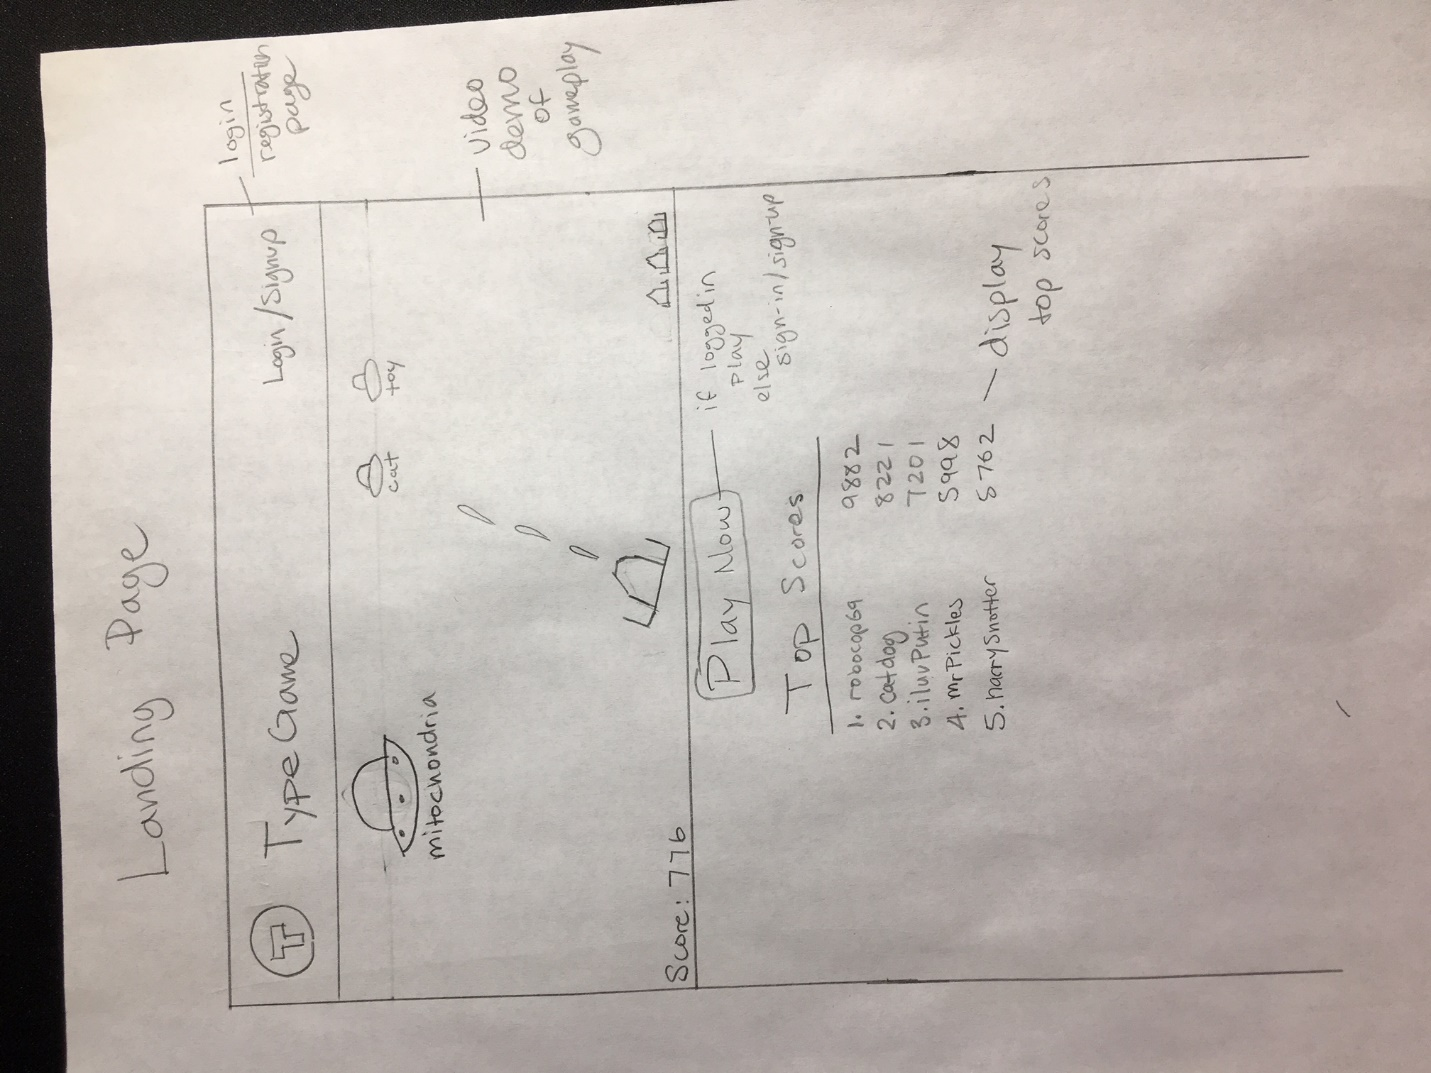 Landing Page
login
registration
page
T
TypeGame
Login/Signup
mitochondria
cat
toy
video
demo
of
gameplay
Score: 776
Play Now
if logged in
play
else
sign-in/signup
Top Scores
1. robocop69 9882
2. Catdog 8221
3. iluvPutin 7201
4. mrPickles 5998
5. harrySnotter 5762
display
top scores